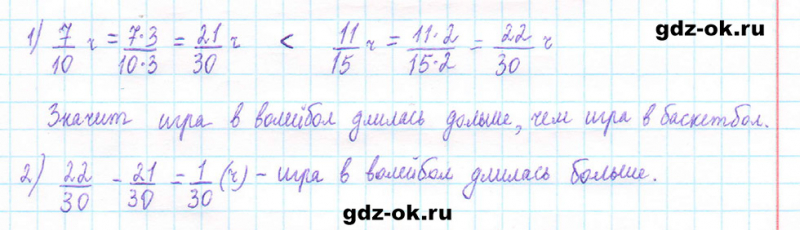 gdz-ok.ru
1) 7/10 ч = 7·3/10·3 = 21/30 ч < 11/15 ч = 11·2/15·2 = 22/30 ч
Значит игра в волейбол длилась дольше, чем игра в баскетбол.
2) 22/30 - 21/30 = 1/30 (ч) - игра в волейбол длилась больше.
gdz-ok.ru